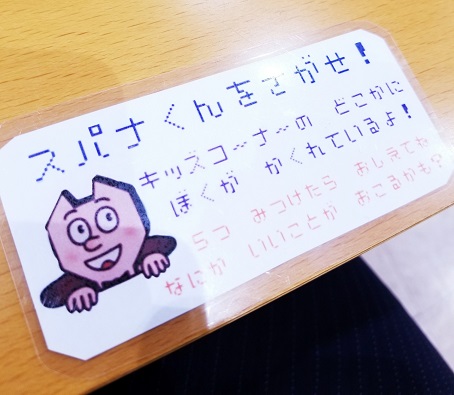 スパナくんをさがせ！
キッズコーナーの どこかに
ぼくが かくれているよ！
５つ みつけたら おしえてね
なにか いいことが おこるかも？